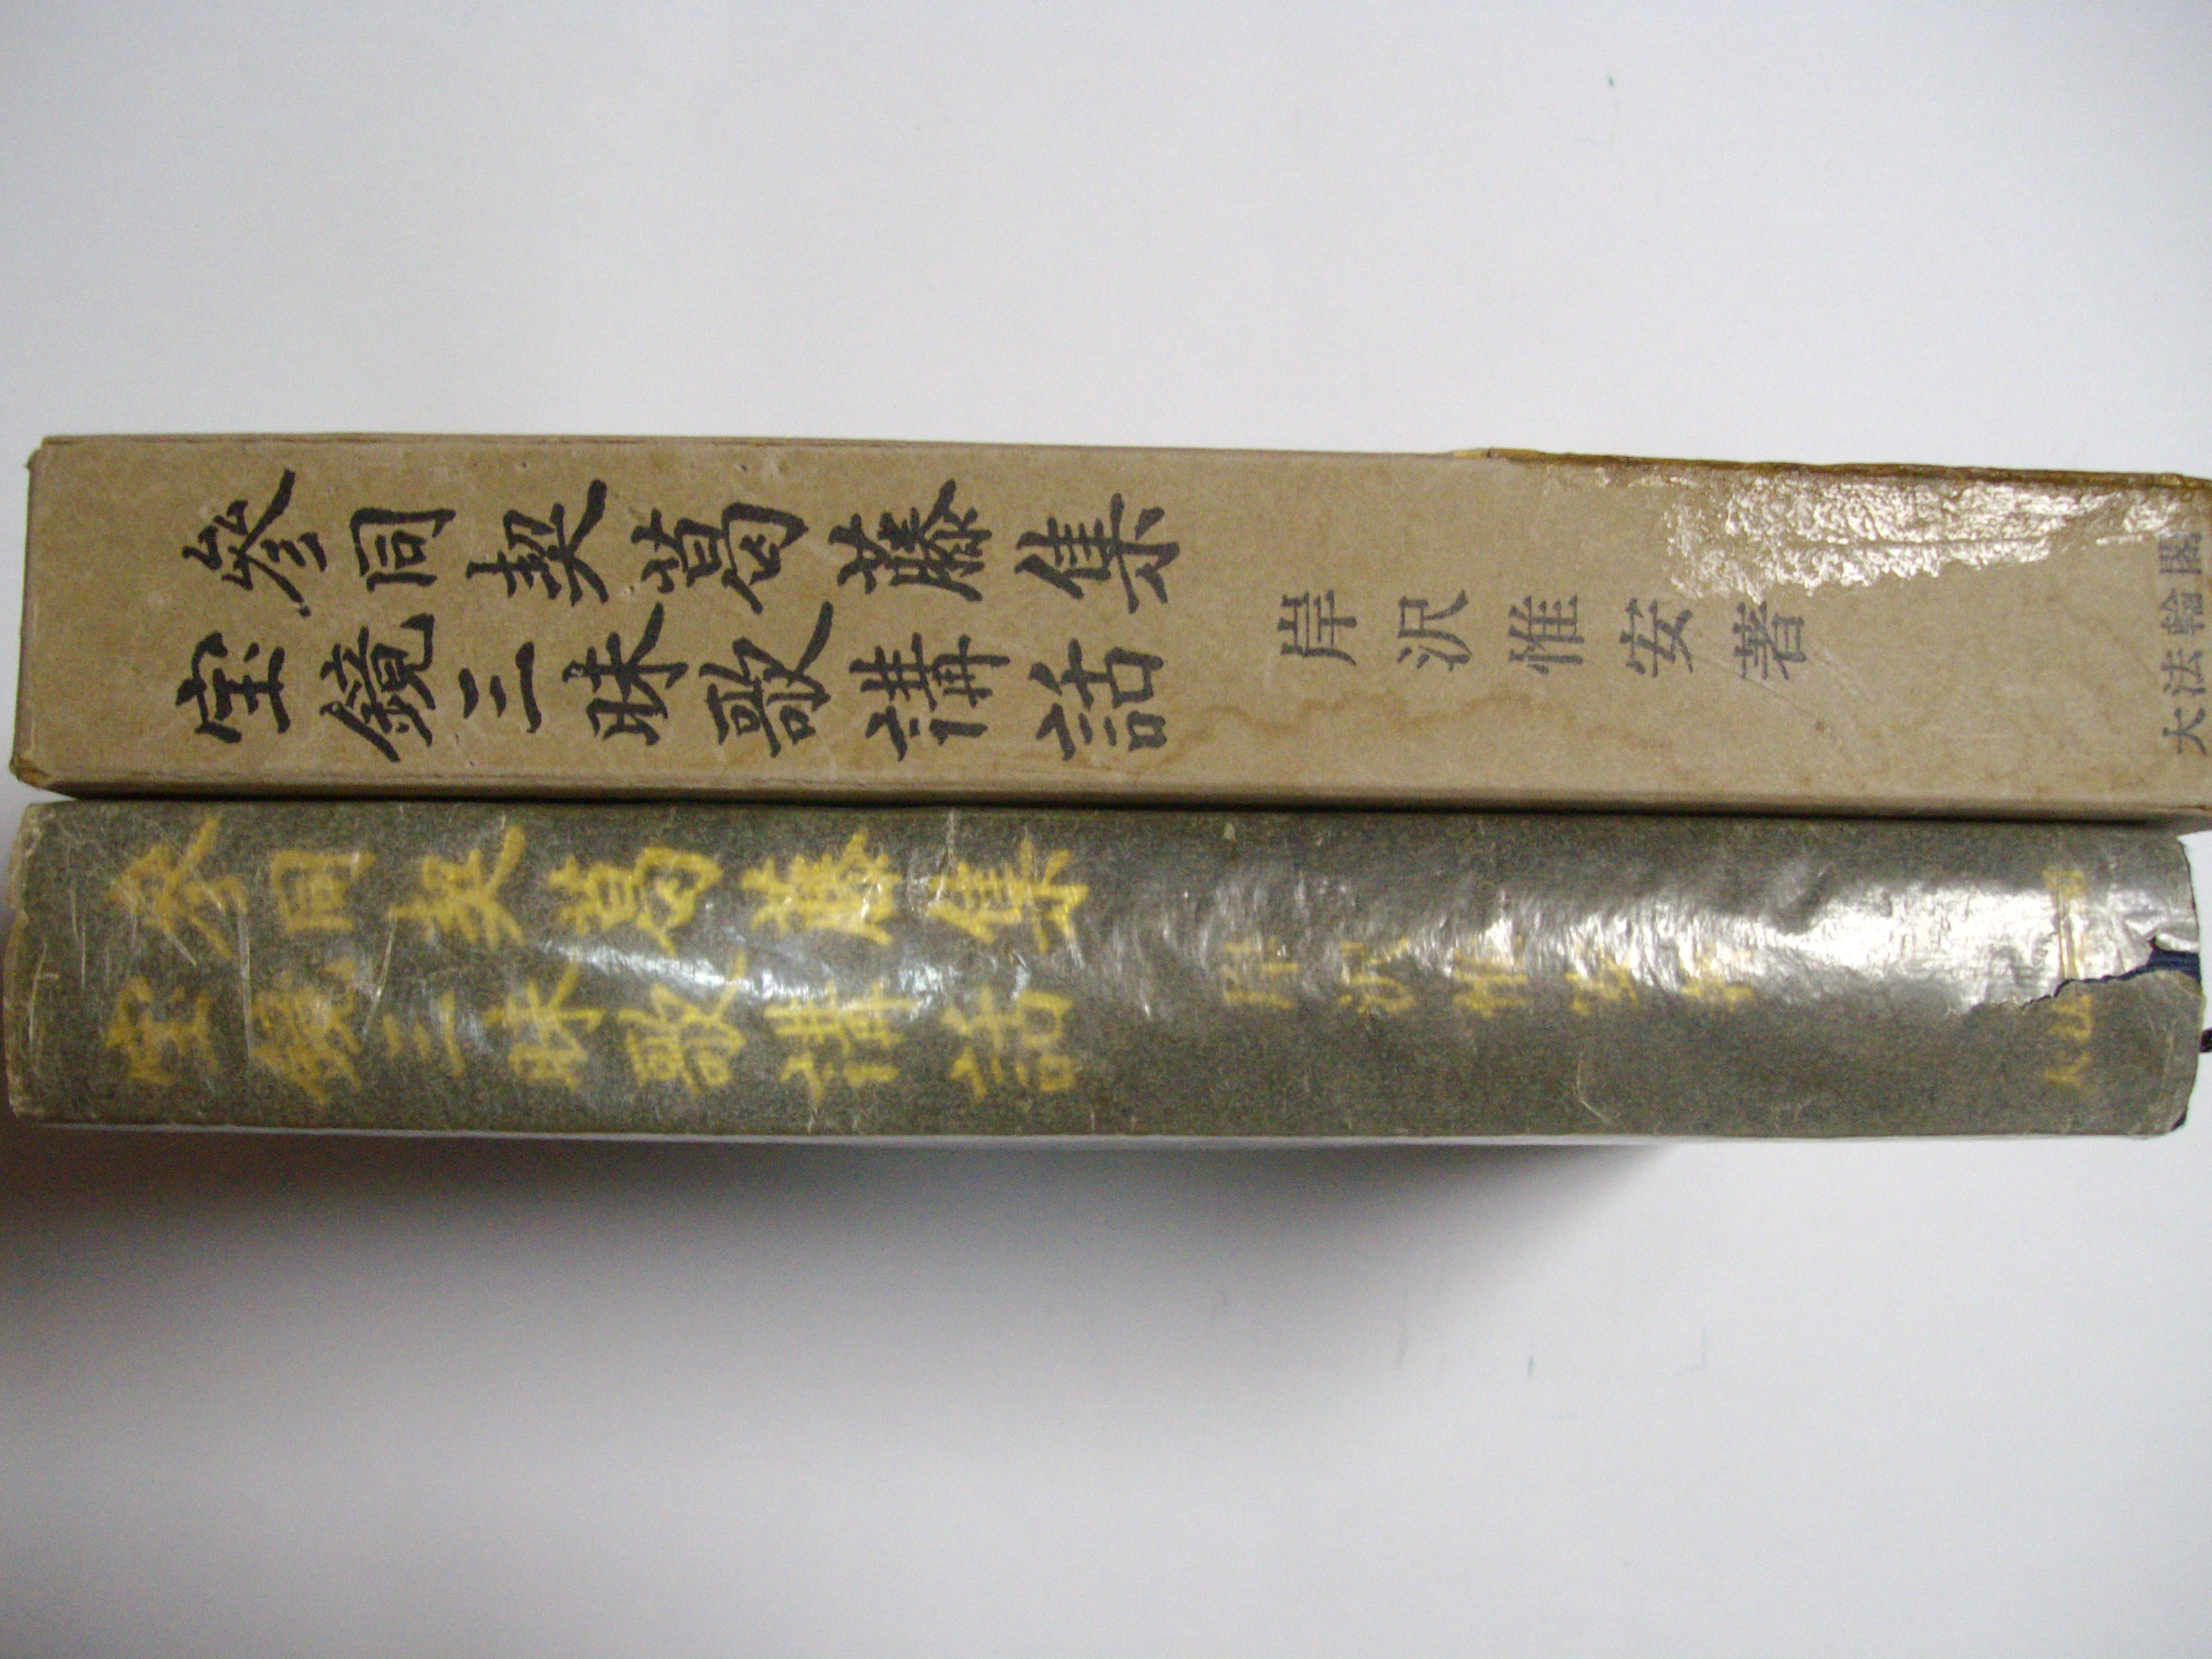 參同契葛藤集
宝鏡三昧歌講話
岸沢惟安著
大法輪閣
參同契葛藤集
宝鏡三昧歌講話
岸沢惟安著